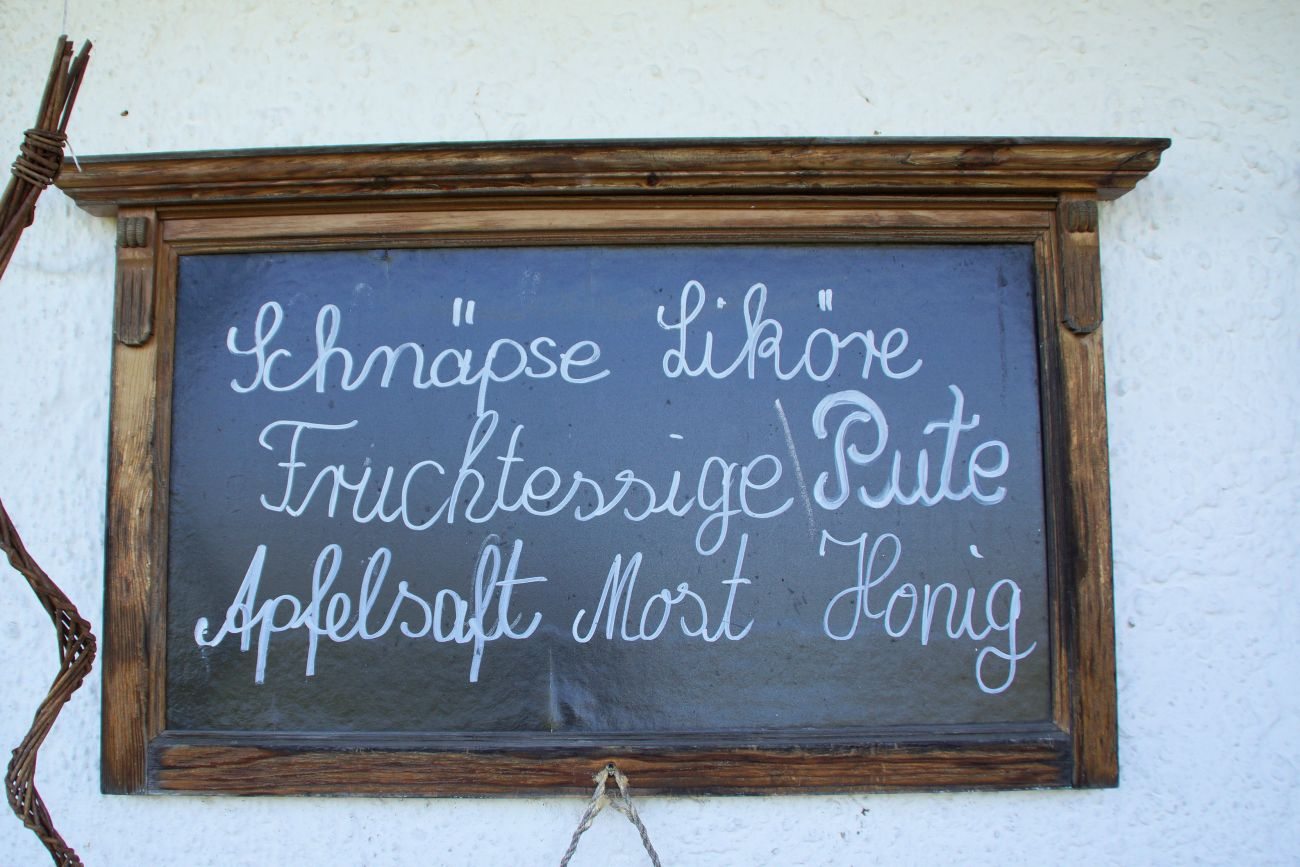 Schnäpse Liköre
Fruchtessige Pute
Apfelsaft Most Honig